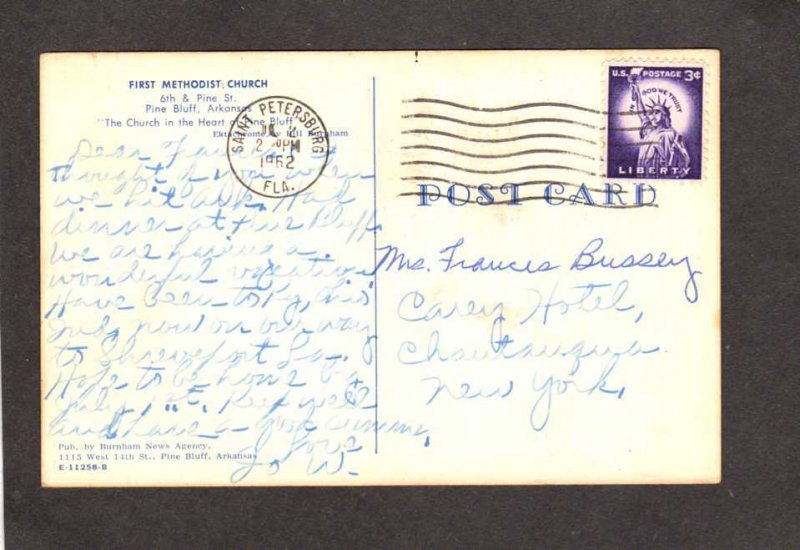 FIRST METHODIST CHURCH
6th & Pine St.
Pine Bluff, Arkansas
"The Church in the Heart of Pine Bluff"
Ektachrome by Bill Burnham
Dear Frances, I
thought of you when
we hit Ark. Had
dinner at Pine Bluff.
We are having a
wonderful vacation
Have been to Ky,
Ind, now on our way
to Shreveport La.
Hope to be home by
July 1st. Keep well
and have a good summer,
Love
Jo W.
Pub. by Burnham News Agency,
1115 West 14th St., Pine Bluff, Arkansas
E-11258-B
SAINT PETERSBURG
2 PM
1962
FLA.
U.S. POSTAGE 3¢
IN GOD WE TRUST
LIBERTY
POST CARD
Mrs. Frances Bussey
Carey Hotel,
Chautauqua
New York,